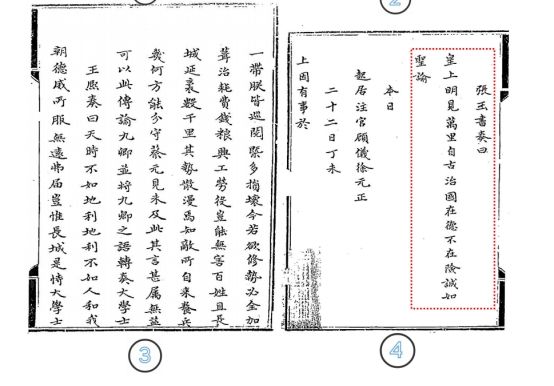 一帶朕皆巡閱槩多損壞今若欲修築必全加
葺治耗費錢粮興工勞役豈能無害百姓且長
城延袤數千里其勢散漫焉知敵所自來養兵
幾何方能分守蔡元見未及此其言甚屬無益
可以此傳諭九卿並將九卿之語轉奏大學士
王熙奏曰天時不如地利地利不如人和我
朝德威所服無遠弗屆豈惟長城是恃大學士
③
張玉書奏曰
皇上明見萬里自古治國在德不在險誠如
聖諭
本日
起居注官顧儀徐元正
二十二日丁未
上因有事於
④